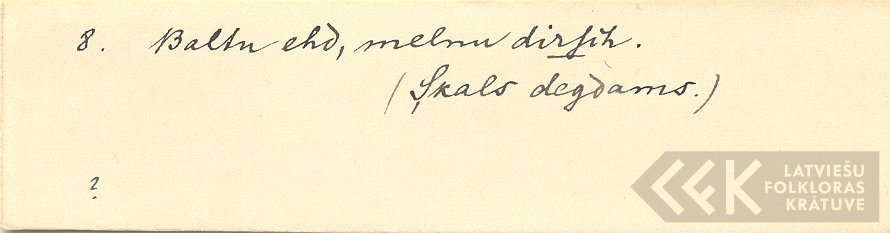 8. Baltu ehd, melnu dirsih.
(Skals degdams.)
?
LATVIEŠU
FOLKLORAS
KRĀTUVE